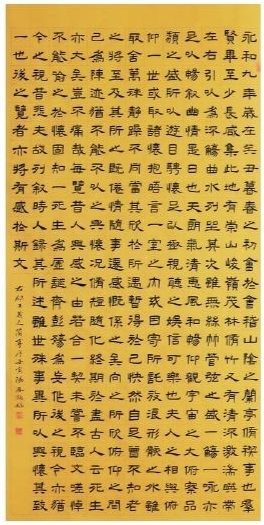 永和九年歲在癸丑暮春之初會於會稽山陰之蘭亭脩稧事也羣
賢畢至少長咸集此地有崇山峻嶺茂林脩竹又有清流激湍映帶
左右引以為流觴曲水列坐其次雖無絲竹管弦之盛一觴一詠亦
足以暢敘幽情是日也天朗氣清惠風和暢仰觀宇宙之大俯察品
類之盛所以遊目騁懷足以極視聽之娛信可樂也夫人之相與俯
仰一世或取諸懷抱晤言一室之內或因寄所託放浪形骸之外雖
取舍萬殊靜躁不同當其欣於所遇暫得於己快然自足曾不知老
之將至及其所之既倦情隨事遷感慨係之矣向之所欣俯仰之間
已為陳迹猶不能不以之興懷況脩短隨化終期於盡古人云死生
亦大矣豈不痛哉每覽昔人興感之由若合一契未嘗不臨文嗟悼
不能喻之於懷固知一死生為虛誕齊彭殤為妄作後之視今亦猶
今之視昔悲夫故列敘時人錄其所述雖世殊事異所以興懷其致
一也後之覽者亦將有感於斯文
右錄王羲之蘭亭序